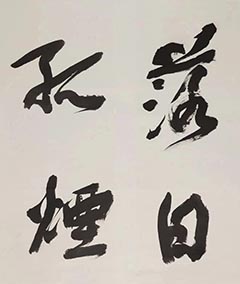 落日
孤煙